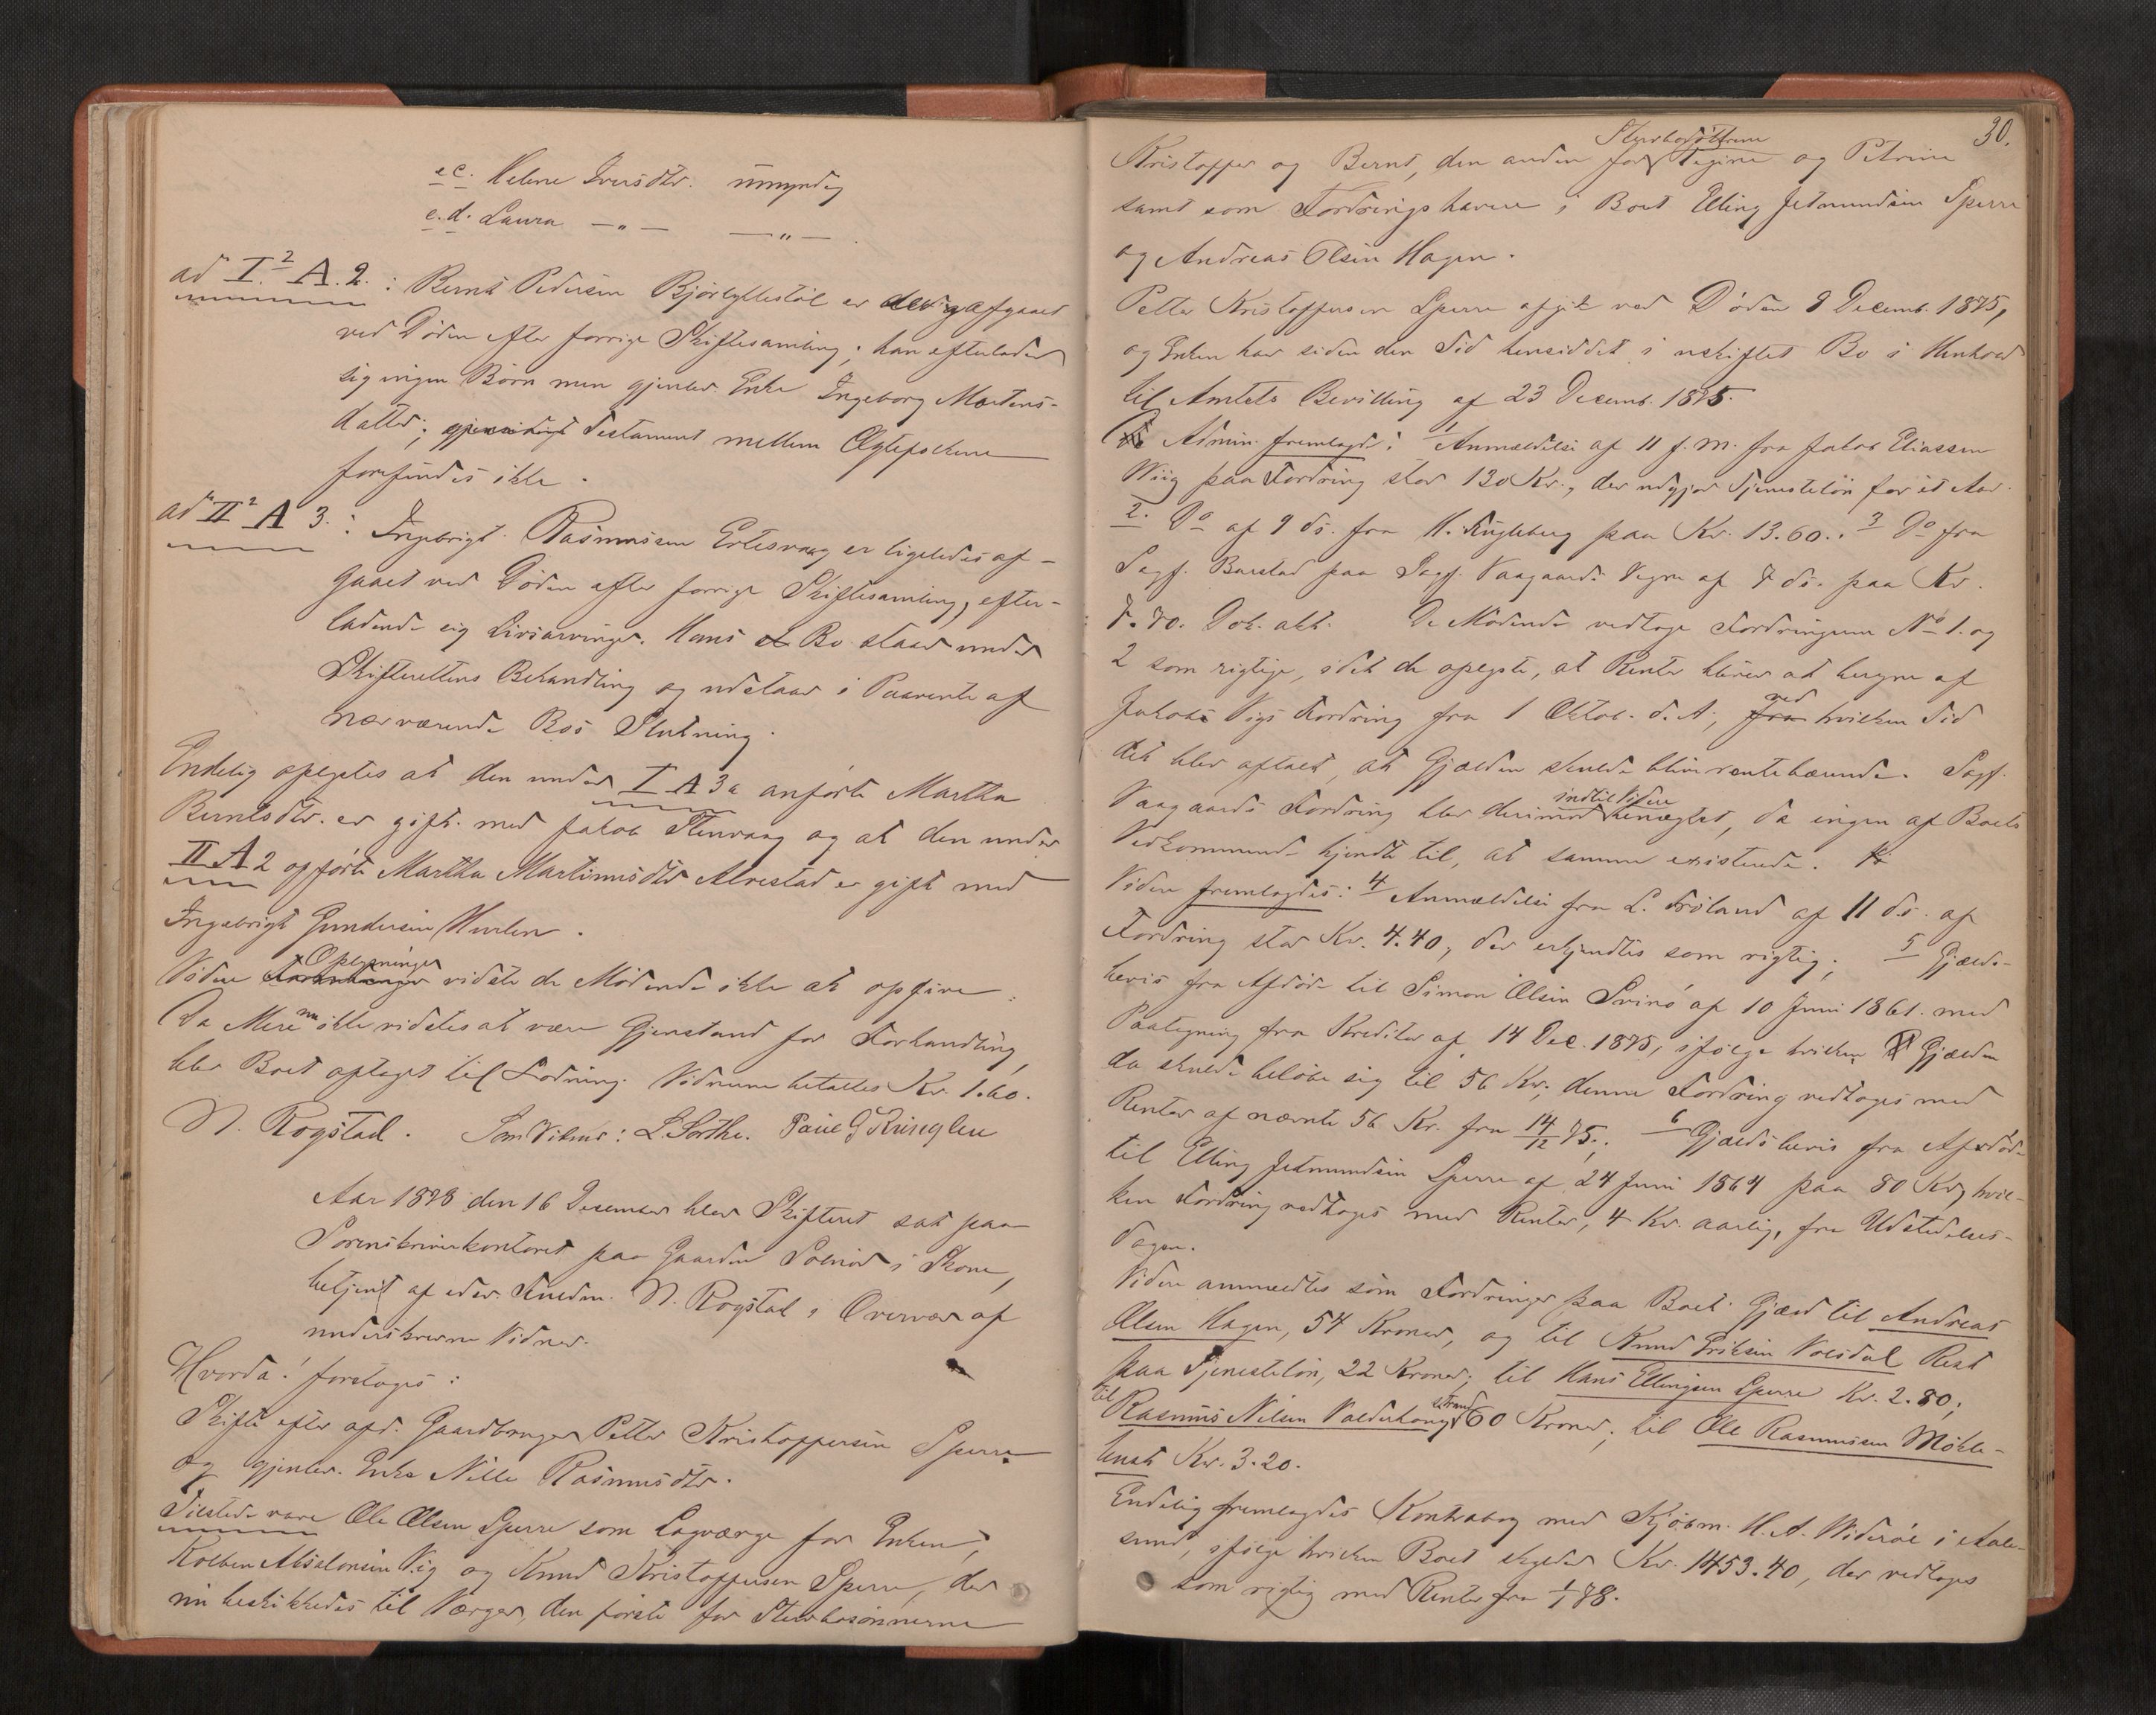 e c. Helene Iversdtr. umyndig
e. d. Laura —"— —"—.
ad I.² A. 2. : Bernt Pedersen Bjørlykkestøl er afgaaet
ved Døden efter forrige Skiftesamling; han efterlader
sig ingen Børn men gjenlev. Enke Ingeborg Martens-
datter; gjensidigt Testament mellem Ægtefolkene
forefindes ikke.
ad II² A 3. : Ingebrigt Rasmussen Ertesvaag er ligeledes af-
gaaet ved Døden efter forrige Skiftesamling, efter-
ladende sig Livsarvinger. Hans Bo staar under
Skifterettens Behandling og udstaar i Paavente af
nærværende Bos Slutning.
Endelig oplystes at den under I A 3a anførte Martha
Berntsdtr. er gift med Jakob Stenvaag og at den under
II A 2 opførte Martha Martinusdtr Alvestad er gift med
Ingebrigt Gundersen Hurlen.
Videre Oplysninger vidste de Mødende ikke at opgive.
Da Mere nu ikke vidstes at være Gjenstand for Forhandling,
blev Boet optaget til Lodning. Vidnerne betaltes Kr. 1.60.
N. Rogstad. Som Vidner: L. Sorthe. Paul G Kringlen
Aar 1878 den 16 Desember blev Skifteret sat paa
Sorenskriverkontoret paa Gaarden Solnør i Skone,
betjent af edsv. Fuldm. N. Rogstad i Overvær af
underskrevne Vidner.
Hvorda! foretoges:
Skifte efter afd. Gaardbruger Petter Kristoffersen Sperre
og gjenlev. Enke Nille Rasmusdtr.
Tilstede vare Ole Olsen Sperre som Lagværge for Enken,
Kolben Absalonsen Vig og Knud Kristoffersen Sperre, der
nu beskikkedes til Værger, den første for Stervbosønnerne
30.
Stervbodøttrene
Kristoffer og Bernt, den anden for Regine og Petrine
samt som Fordringshavere i Boet Elling Jetmundsen Sperre
og Andreas Olsen Hagen.
Petter Kristoffersen Sperre afgik ved Døden 8 Decemb. 1875,
og Enken har siden den Tid hensiddet i uskiftet Bo i Henhold
til Amtets Bevilling af 23 Decemb. 1875.
Admin. fremlagde: 1 Anmeldelse af 11 f. M. fra Jakob Eliassen
Wiig paa Fordring stor 120 Kr., der udgjør Tjenesteløn for et Aar.
2. Do af 9 ds. fra H. Kugleberg paa Kr. 13.60. 3 Do fra
Sagf. Barstad paa Sagf. Vaagaards Vegne af 7 ds. paa Kr.
7.70. Dok. akt. De Mødende vedtoge Fordringerne No 1. og
2 som rigtige, idet de oplyste, at Renter bliver at beregne af
Jakobs Vigs Fordring fra 1 Oktob. d. A., ved hvilken Tid
det blev aftalt, at Gjælden skulde blive rentebærende. Sagf.
Vaagaards Fordring blev derimod indtil Videre benægtet, da ingen af Boets
Vedkommende kjendte til, at samme existerede.
Videre fremlagdes: 4 Anmeldelse fra L. Frøland af 11 ds. af
Fordring stor Kr. 4.40, der erkjendtes som rigtig; 5 Gjælds-
bevis fra Afdøde til Simon Olsen Svinø af 10 Juni 1861 med
Paategning fra Kreditor af 14 Dec. 1875, ifølge hvilken Gjælden
da skulde beløbe sig til 56 Kr; denne Fordring vedtoges med
Renter af nævnte 56 Kr. fra 14/12 75; 6 Gjældsbevis fra Afdøde
til Elling Jetmundsen Sperre af 24 Juni 1864 paa 80 Kr, hvil-
ken Fordring vedtoges med Renter, 4 Kr. aarlig, fra Udstedelses-
dagen.
Videre anmeldtes som Fordringer paa Boet: Gjæld til Andreas
Olsen Hagen, 54 Kroner, og til Knud Eriksen Volsdal Rest
paa Tjenesteløn, 22 Kroner; til Hans Ellingsen Sperre Kr. 2.80;
til Rasmus Nilsen Valderhaug strand 60 Kroner; til Ole Rasmussen Mokle-
bust Kr. 3.20.
Endelig fremlagdes Kontrabog med Kjøbm. H. A. Widerøe i Aale-
sund, ifølge hvilken Boet skylder Kr. 1453.40, der vedtoges
som rigtig med Renter fra 1/1 78.